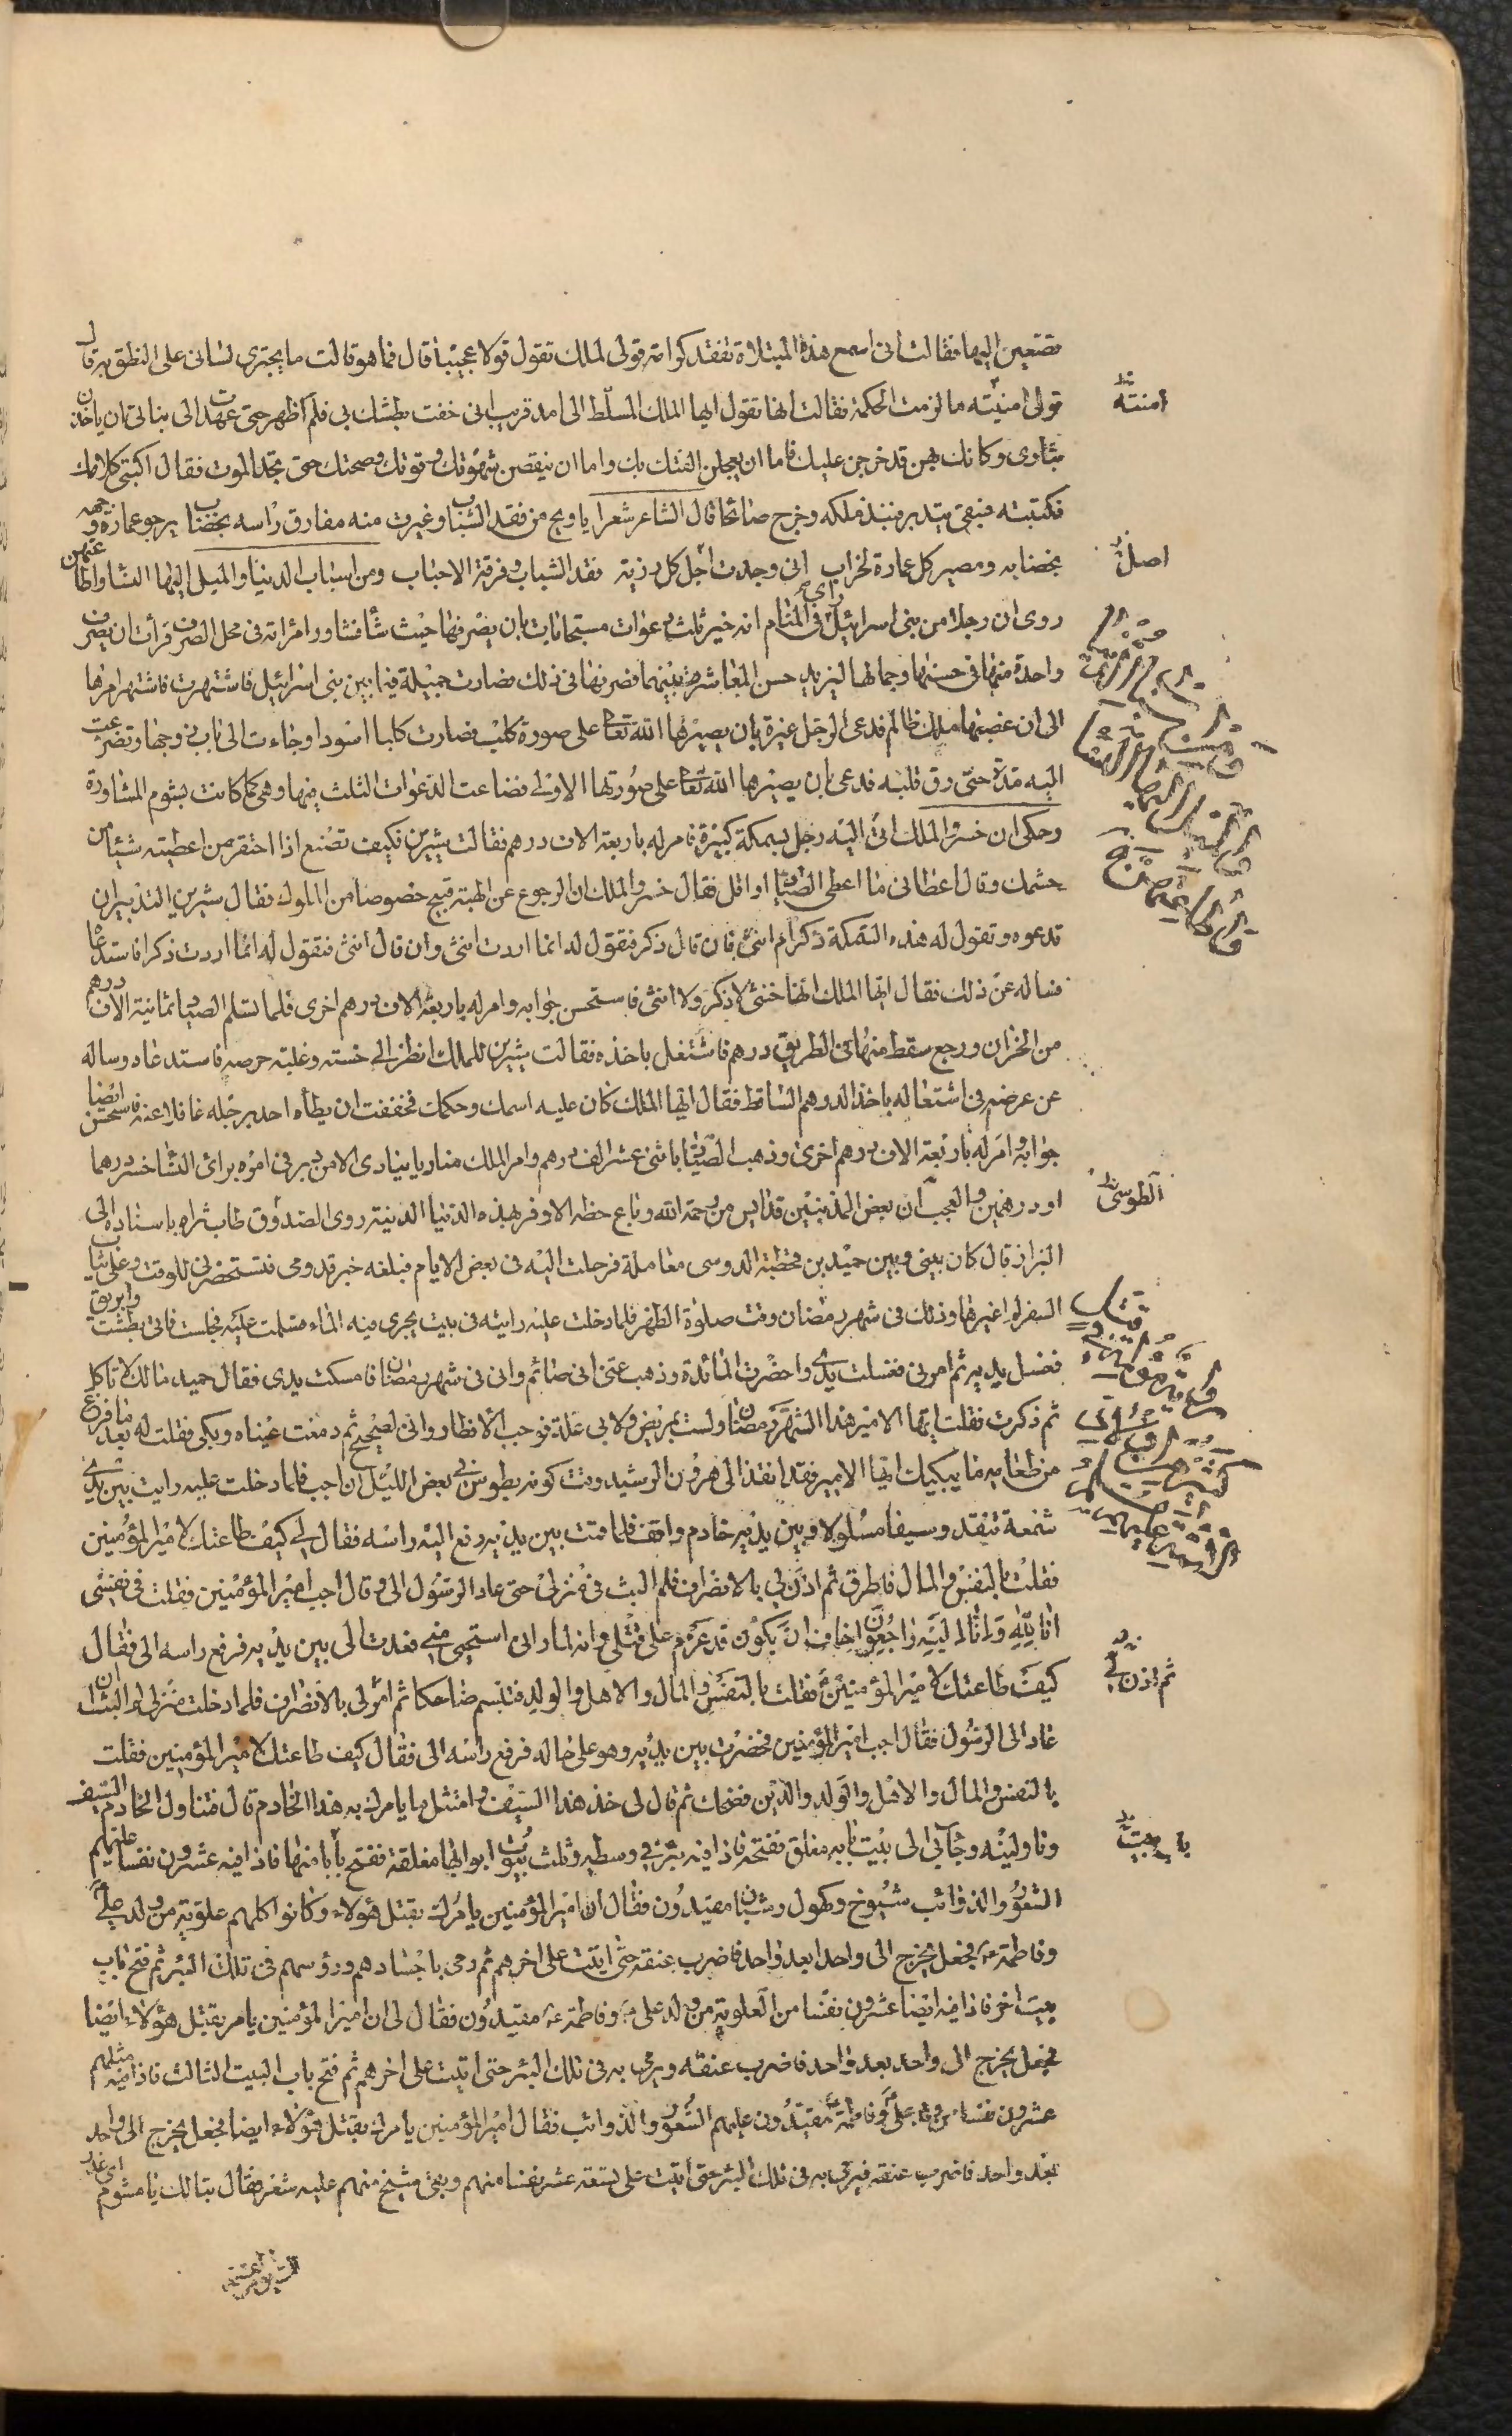 فتصغين اليها فقالت انى اسمع هذه المبتلاة تفقد كرامتى قولى لملك تقول قولا عجيبا قال فما هو قالت ما يجترى لسانى على النطق به قال
قولى امنيّته ما لزمت الحكمة فقالت انها تقول ايها الملك المسلّط الى امد قريب انى خفت بطشك بى فلم اظهر حتى عهدت الى بناتى ان ياخذن
بثارى وكانك بهن قد خرجن عليك فاما ان يعجلن الفتك بك واما ان ينقصن شهوتك وقوتك وصحتك حتى تجد الموت فقال اكتبى كلامك
فكتبته فبقى يتدبره فنبذ ملكه وخرج صائحا قال الشاعر شعر ايا ويح من فقد الشباب وغيرت منه مفارق راسه بخضاب يرجو عمارة وجهه
بخضابه ومصير كل عمارة لخراب انى وجدت اجل كل رزية فقد الشباب وفرقة الاحباب ومن اسباب الدنيا والميل اليها النساء واطاعتهن
روى ان رجلا من بنى اسرائيل راى فى المنام انه خير ثلث دعوات مستجابات بان يصرفها حيث شاء فشاور امراته فى محل الصرف فرأت ان يصرف
واحدة منها فى حسنها وجمالها ليزيد حسن المعاشرة بينهما فصرفها فى ذلك فصارت جميلة فيما بين بنى اسرائيل فاشتهرت فاشتهر امرها
الى ان غصبها ملك ظالم فدعى الرجل غيرة بان يصيرها الله تعالى على صورة كلب فصارت كلبا اسودا وجاءت الى باب زوجها وتضرعت
اليه مدة حتى رق قلبه فدعى بان يصيرها الله تعالى على صورتها الاولى فضاعت الدعوات الثلث فيها وهى كما كانت بشوم المشاورة
وحكى ان خسرو الملك اتى اليه رجل بسمكة كبيرة فامر له باربعة الاف درهم فقالت شيرين فكيف تصنع اذا احتقر من اعطيته شيئا من
حشمك وقال اعطانى ما اعطى الصياد او اقل فقال خسرو الملك ان الرجوع عن الهبة قبيح خصوصا من الملوك فقال شيرين التدبير ان
تدعوه وتقول له هذه السمكة ذكر ام انثى فان قال ذكر فنقول له انما اردت انثى وان قال انثى فنقول له انما اردت ذكرا فاستدعاه
فساله عن ذلك فقال ايها الملك انها خنثى لا ذكر ولا انثى فاستحسن جوابه وامر له باربعة الاف درهم اخرى فلما تسلم الصياد ثمانية الاف درهم
من الخزان ورجع سقط منها فى الطريق درهم فاشتغل باخذه فقالت شيرين للملك انظر الى خسته وغلبة حرصه فاستدعاه وساله
عن غرضه فى اشتغاله باخذ الدرهم الساقط فقال ايها الملك كان عليه اسمك وحكمك فخفت ان يطأه احد برجله غافلا عنه فاستحسن ايضا
جوابه وامر له باربعة الاف درهم اخرى وذهب الصياد باثنى عشر الف درهم وامر الملك مناديا ينادى الا من دبر فى امره براى النساء خسر درهما
او درهمين والعجب ان بعض المذنبين قد ايس من رحمة الله وباع حظه الاوفر بهذه الدنيا الدنية روى الصدوق طاب ثراه باسناده الى
البزاز قال كان بينى وبين حميد بن قحطبة الدوسى معاملة فرحلت اليه فى بعض الايام فبلغه خبر قدومى فتستحضرنى للوقت وعلى ثياب
السفر لم اغيرها وذلك فى شهر رمضان وقت صلوة الظهر فلما دخلت عليه رايته فى بيت يجرى فيه الماء فسلمت عليه فجلست فاتى بطشت وابريق
فغسل يديه ثم امرنى فغسلت يدى واحضرت المائدة وذهب عنى انى صائم وانى فى شهر رمضان فامسكت يدى فقال حميد مالك لا تاكل
ثم ذكرت فقلت ايها الامير هذا الشهر رمضان ولست بمريض ولا بى علة توجب الافطار وانى لصحيح ثم دمعت عيناه وبكى فقلت له بعد ما فرغ
من طعامه ما يبكيك ايها الامير فقد انفذ الى هرون الرشيد وقت كونه بطوس فى بعض الليل ان اجب فلما دخلت عليه رايت بين يديه
شمعة تتقد وسيفا مسلولا وبين يديه خادم واقف فلما قمت بين يديه رفع اليه راسه فقال لى كيف طاعتك لامير المؤمنين
فقلت بالنفس والمال فاطرق ثم اذن لى بالانصراف فلم البث فى منزلى حتى عاد الرسول الى وقال اجب امير المؤمنين فقلت فى نفسى
انا لله وانا اليه راجعون اخاف ان يكون قد عزم على قتلى وانه لما رانى استحيى منى فعدت الى بين يديه فرفع راسه الى فقال
كيف طاعتك لامير المؤمنين فقلت بالنفس والمال والاهل والولد فتبسم ضاحكا ثم امرنى بالانصراف فلما دخلت منزلى لم البث ان
عاد الى الرسول فقال اجب امير المؤمنين فحضرت بين يديه وهو على حاله فرفع راسه الى فقال كيف طاعتك لامير المؤمنين فقلت
بالنفس والمال والاهل والولد والدين فضحك ثم قال لى خذ هذا السيف وامتثل ما يامرك به هذا الخادم قال فتناول الخادم السيف
وناولنيه وجاء بى الى بيت بابه مغلق ففتحه فاذا فيه بئر فى وسطه وثلث بيوت ابوابها مغلقة ففتح بابا منها فاذا فيه عشرون نفسا عليهم
الشعور والذوائب شيوخ وكهول وشبان مقيدون فقال ان امير المؤمنين يامرك بقتل هؤلاء وكانوا كلهم علوية من ولد على
وفاطمة ع فجعل يخرج الى واحدا بعد واحد فاضرب عنقه حتى اتيت على اخرهم ثم رمى باجسادهم ورؤسهم فى تلك البئر ثم فتح باب
بيت اخر فاذا فيه ايضا عشرون نفسا من العلوية من ولد على وفاطمة ع مقيدون فقال لى ان امير المؤمنين يامر بقتل هؤلاء ايضا
فجعل يخرج الى واحد بعد واحد فاضرب عنقه ويرمى به فى تلك البئر حتى اتيت على اخرهم ثم فتح باب البيت الثالث فاذا فيه مثلهم
عشرون نفسا من ولد على وفاطمة مقيدون عليهم الشعور والذوائب فقال امير المؤمنين يامرك بقتل هؤلاء ايضا فجعل يخرج الى واحد
بعد واحد فاضرب عنقه فيرمى به فى تلك البئر حتى اتيت على تسعة عشر نفسا منهم وبقى شيخ منهم عليه شعر فقال تبا لك يا مشوم اى عذر
امنته
اصل
الطوسى
ثم اذن لى
بيت